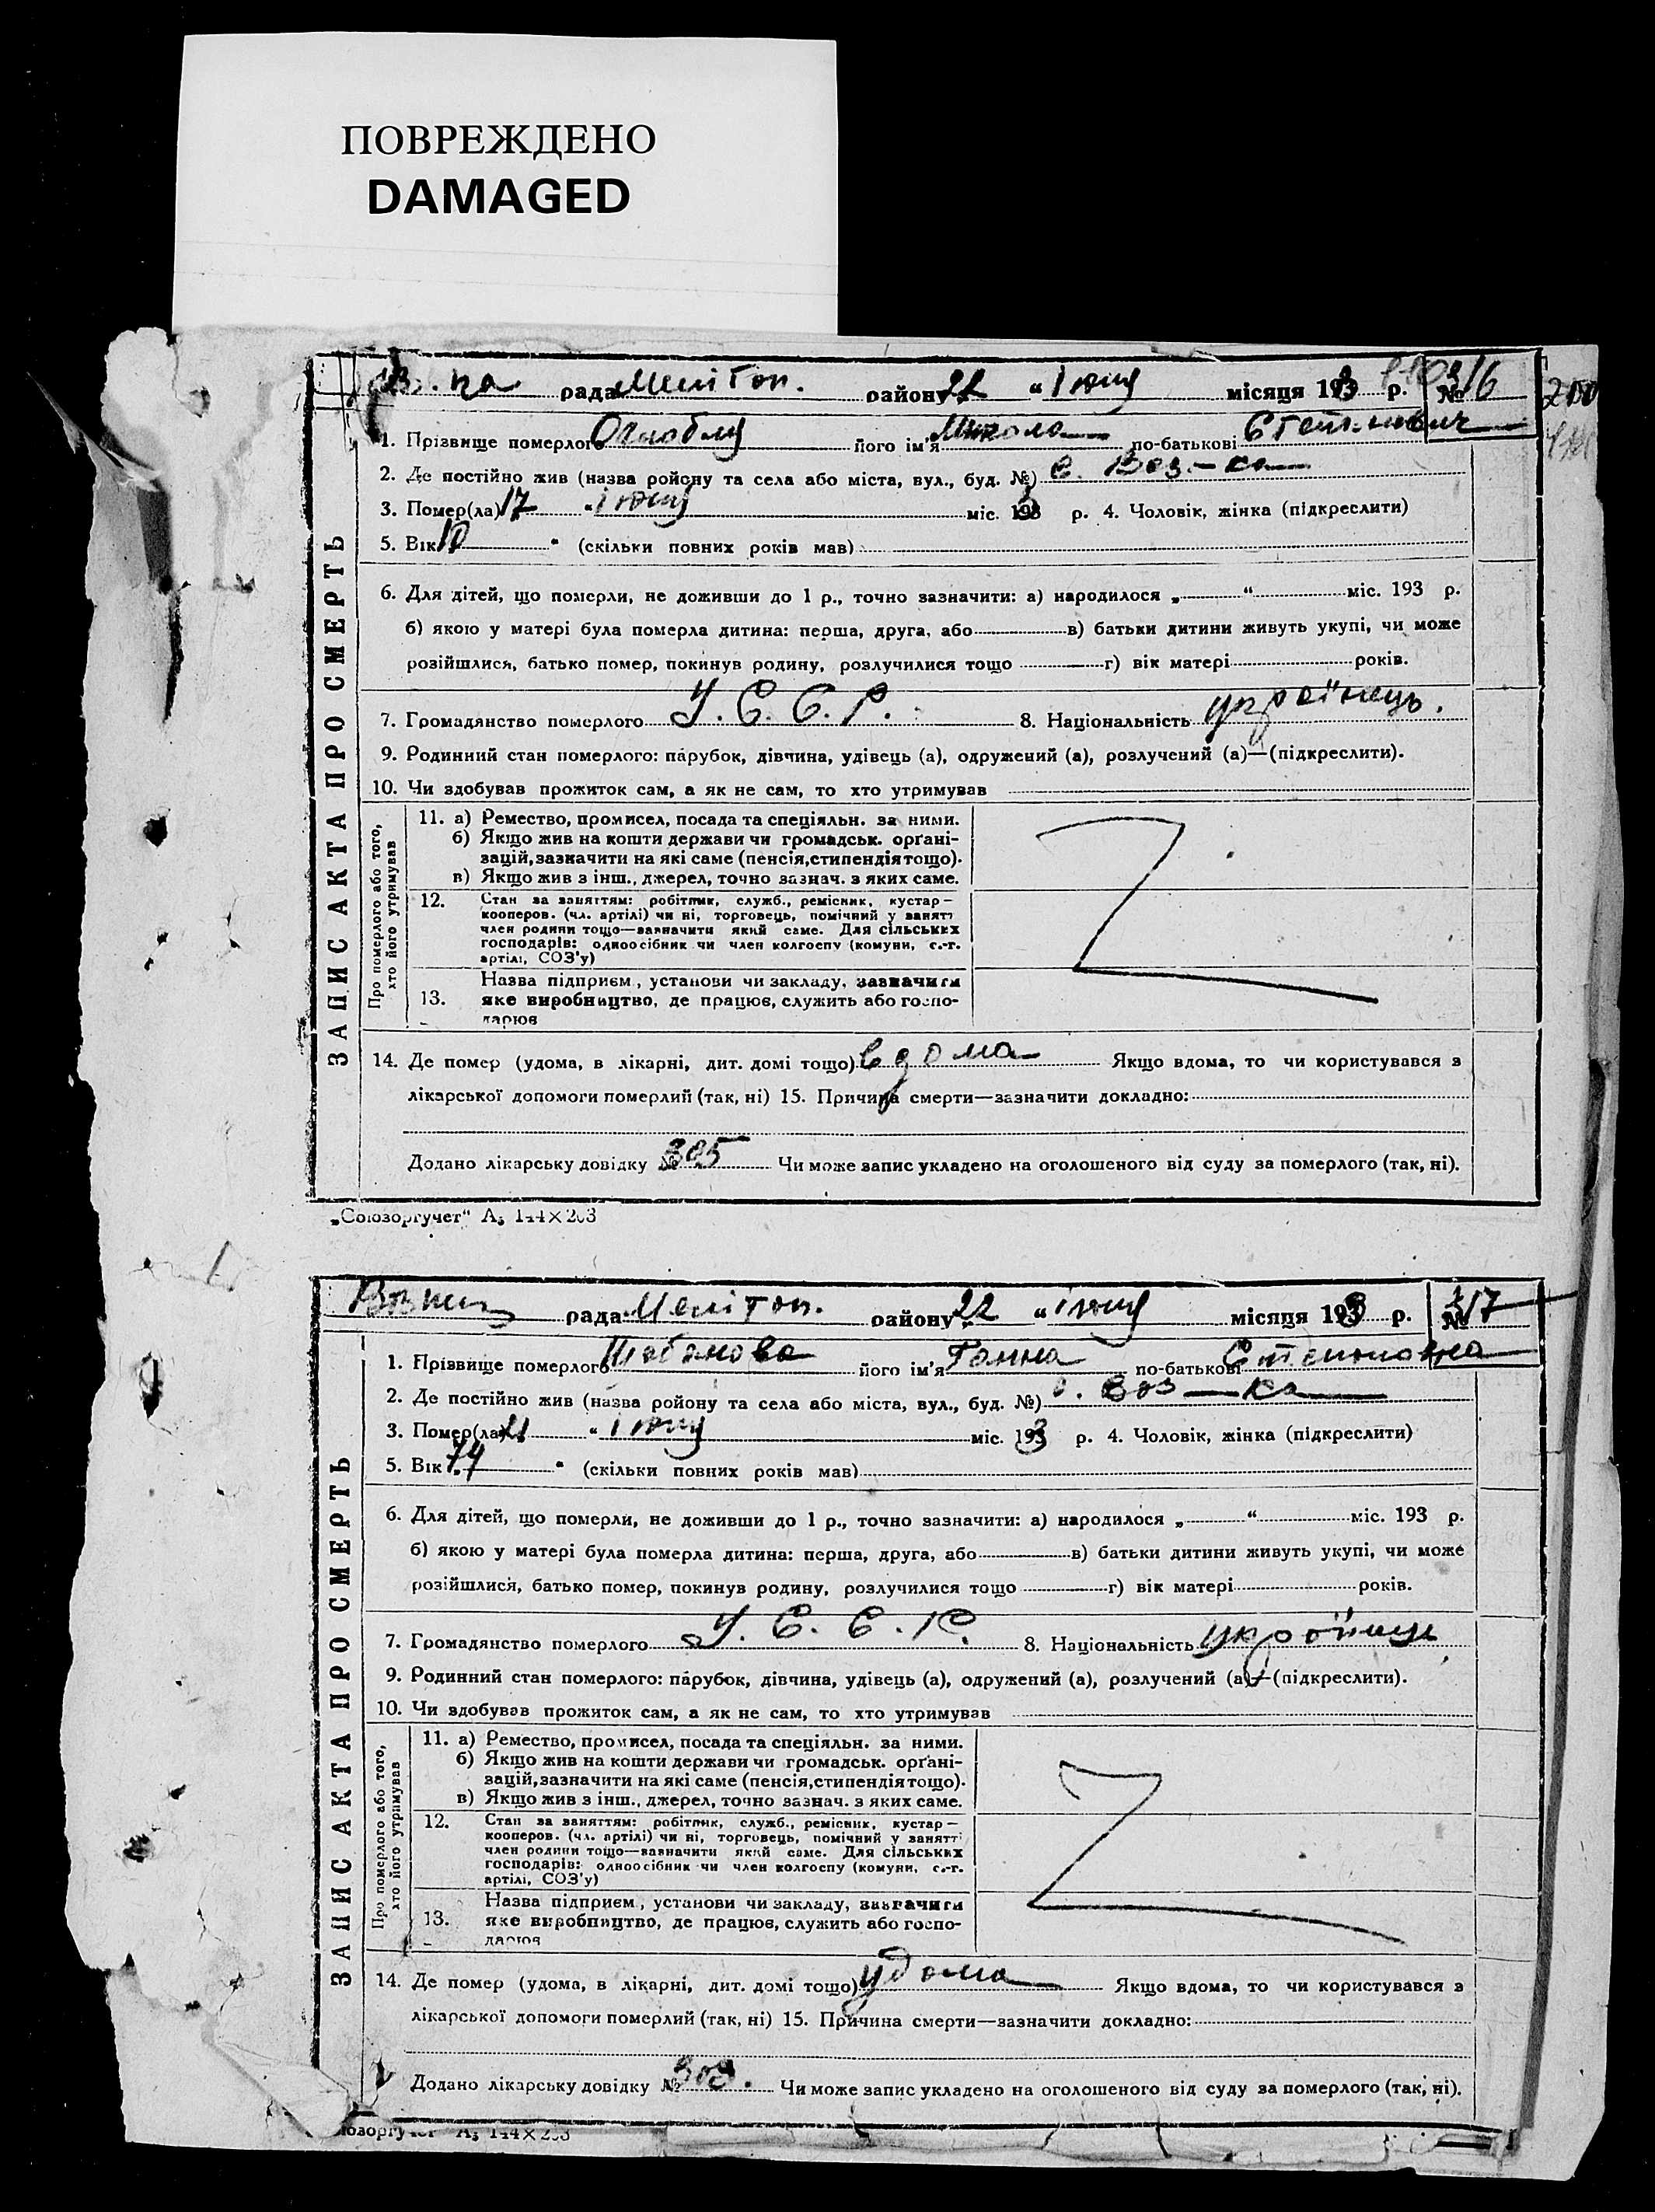 ПОВРЕЖДЕНО
DAMAGED
рада Мелітоп. району 22 “ Іюня місяця 1933 р. № 316
1. Прізвище померлого його ім'я Микола по-батькові Степанович
2. Де постійно жив (назва ройону та села або міста, вул., буд. №) с. Воз-ка
3. Помер(ла) 17 “ Іюня міс. 1933 р. 4. Чоловік, жінка (підкреслити)
5. Вік 10 “ (скільки повних років мав)
6. Для дітей, що померли, не доживши до 1 р., точно зазначити: а) народилося „ “ міс. 193 р.
б) якою у матері була померла дитина: перша, друга, або в) батьки дитини живуть укупі, чи може
розійшлися, батько помер, покинув родину, розлучилися тощо г) вік матері років.
7. Громадянство померлого У.С.С.Р. 8. Національність українець.
9. Родинний стан померлого: парубок, дівчина, удівець (а), одружений (а), розлучений (а)—(підкреслити).
10. Чи здобував прожиток сам, а як не сам, то хто утримував
ЗАПИС АКТА ПРО СМЕРТЬ
Про померлого або того, хто його утримував
11. а) Ремество, промисел, посада та спеціяльн. за ними.
б) Якщо жив на кошти держави чи громадськ. орґані-
зацій, зазначити на які саме (пенсія, стипендія тощо).
в) Якщо жив з інш., джерел, точно зазнач. з яких саме.
12. Стан за заняттям: робітник, служб., ремісник, кустар—
кооперов. (чл. артілі) чи ні, торговець, помічний у занятт
член родини тощо—зазначити який саме. Для сільських
господарів: одноосібник чи член колгоспу (комуни, с.-г.
артілі, СОЗ'у)
13. Назва підприєм., установи чи закладу, зазначити
яке виробництво, де працює, служить або госпо-
дарює
14. Де помер (удома, в лікарні, дит. домі тощо) вдома Якщо вдома, то чи користувався з
лікарської допомоги померлий (так, ні) 15. Причина смерти—зазначити докладно:
Додано лікарську довідку № 305 Чи може запис укладено на оголошеного від суду за померлого (так, ні).
„Союзоргучет“ А₅ 144×203
рада Мелітоп. району 22 “ іюня місяця 1933 р. № 317
1. Прізвище померлого Шабанова його ім'я Ганна по-батькові Степановна
2. Де постійно жив (назва ройону та села або міста, вул., буд. №) с. Воз—ка
3. Помер(ла) 21 “ іюня міс. 1933 р. 4. Чоловік, жінка (підкреслити)
5. Вік 74 “ (скільки повних років мав)
6. Для дітей, що померли, не доживши до 1 р., точно зазначити: а) народилося „ “ міс. 193 р.
б) якою у матері була померла дитина: перша, друга, або в) батьки дитини живуть укупі, чи може
розійшлися, батько помер, покинув родину, розлучилися тощо г) вік матері років.
7. Громадянство померлого У.С.С.Р. 8. Національність
9. Родинний стан померлого: парубок, дівчина, удівець (а), одружений (а), розлучений (а)—(підкреслити).
10. Чи здобував прожиток сам, а як не сам, то хто утримував
ЗАПИС АКТА ПРО СМЕРТЬ
Про померлого або того, хто його утримував
11. а) Ремество, промисел, посада та спеціяльн. за ними.
б) Якщо жив на кошти держави чи громадськ. орґані-
зацій, зазначити на які саме (пенсія, стипендія тощо).
в) Якщо жив з інш., джерел, точно зазнач. з яких саме.
12. Стан за заняттям: робітник, служб., ремісник, кустар—
кооперов. (чл. артілі) чи ні, торговець, помічний у занятт
член родини тощо—зазначити який саме. Для сільських
господарів: одноосібник чи член колгоспу (комуни, с.-г.
артілі, СОЗ'у)
13. Назва підприєм., установи чи закладу, зазначити
яке виробництво, де працює, служить або госпо-
дарює
14. Де помер (удома, в лікарні, дит. домі тощо) удома Якщо вдома, то чи користувався з
лікарської допомоги померлий (так, ні) 15. Причина смерти—зазначити докладно:
Додано лікарську довідку № 309. Чи може запис укладено на оголошеного від суду за померлого (так, ні).
А₅ 144×203